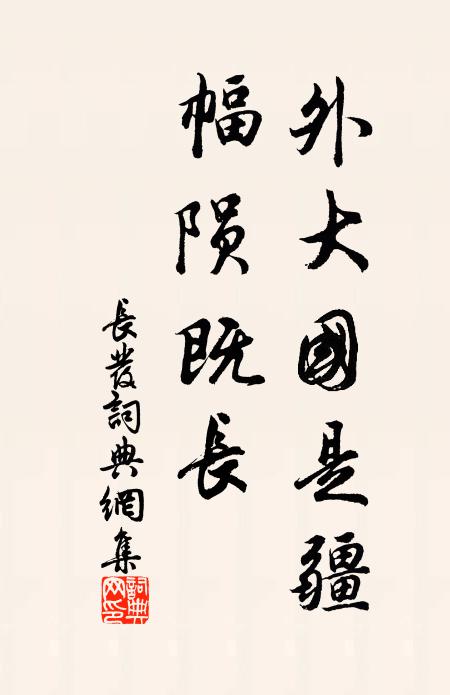 外大國是疆
幅陨既長
長發詞典網集
詞典网印